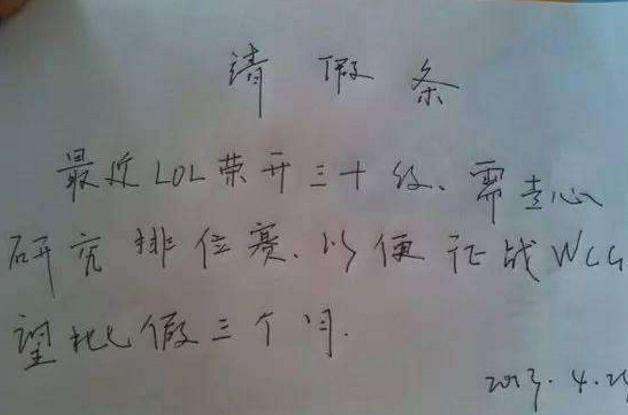 请假条
最近LOL荣升三十级、需专心
研究排位赛、以便征战WCG
望批假三个月.
2013.4.2